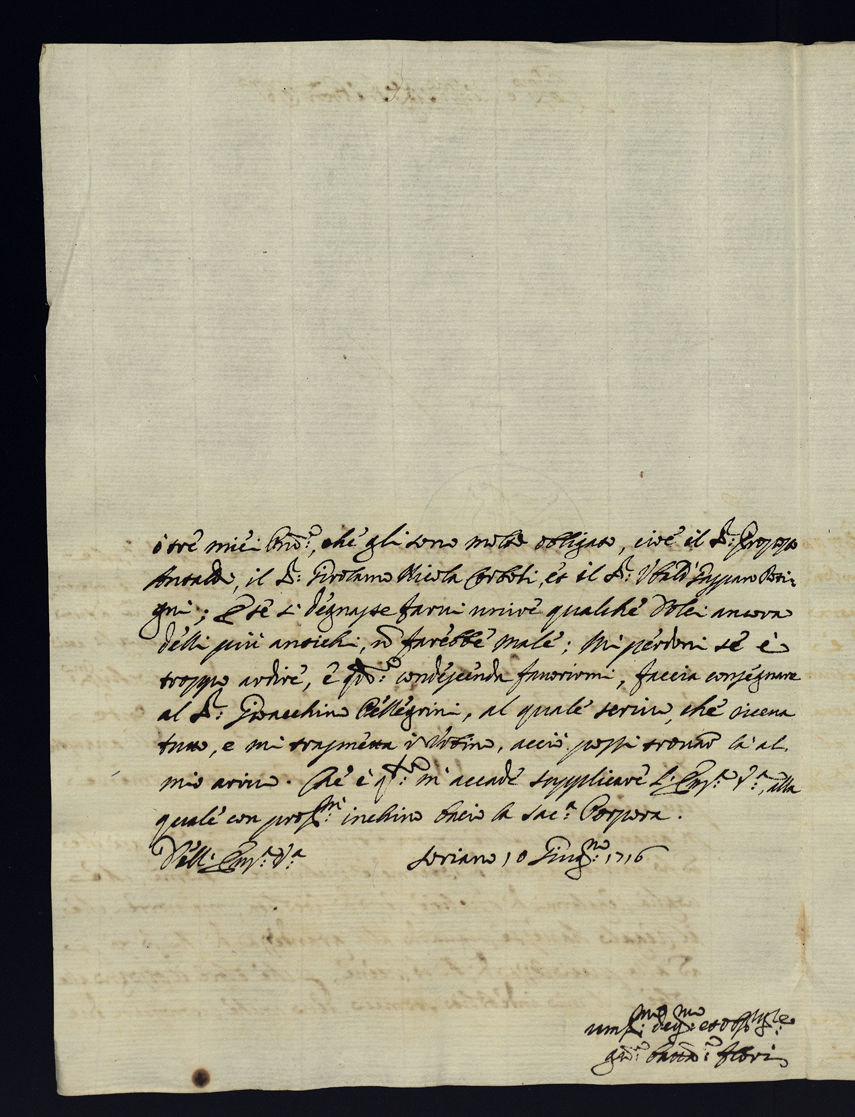 ò tre miei Pnđi, che gli sono molto obligato, cioè il Sr: Prospo
Antaldi, il Sr: Girolamo Nicola Corboli, et il Sr: Ubald: Gasparo Pasi-
gni; E se si degnasse farvi unire qualche d'altri ancora
delli più antichi, nō farebbe male; Mi perdoni se è
troppo ardire, e qdo: condescenda favorirmi, faccia consegnare
al Sr: Gioacchino Pellegrini, al quale scrivo, che riceva
tutto, e mi trasmetta in Urbino, acciò possi trovarlo là al
mio arivo. Che è qto m'accade supplicare l'Em.a V.a, alla
quale con profmi: inchino bacio la Sac.a Porpora.
Dell'Em.a V.a Soriano 10 Giugno: 1716
umsmo: devmo: et obligmo